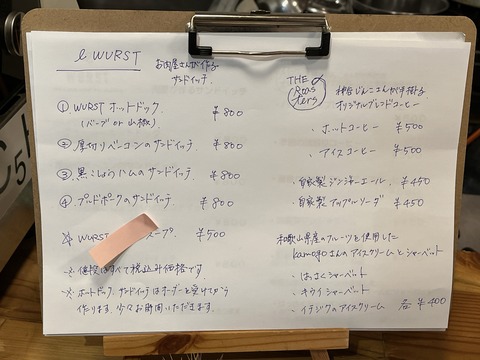 e WURST
お肉屋さんが作る
サンドイッチ.
① WURST ホットドック
(ハーブ or 山椒) ¥800
② 厚切りベーコンのサンドイッチ ¥800
③ 黒こしょうハムのサンドイッチ ¥800
④ プルドポークのサンドイッチ ¥800
WURST スープ. ¥500
※ 値段はすべて税込み価格です
※ ホットドック、サンドイッチはオーダーを受けてから
作ります. 少々お時間いただきます.
THE
Roas
ters
オリジナルブレンドコーヒー
・ホットコーヒー ¥500
・アイスコーヒー ¥500
・自家製ジンジャーエール ¥450
・自家製アップルソーダ ¥450
和歌山県産のフルーツを使用した
さんのアイスクリームとシャーベット
・はっさくシャーベット
・キウイシャーベット
・イチジクのアイスクリーム 各¥400